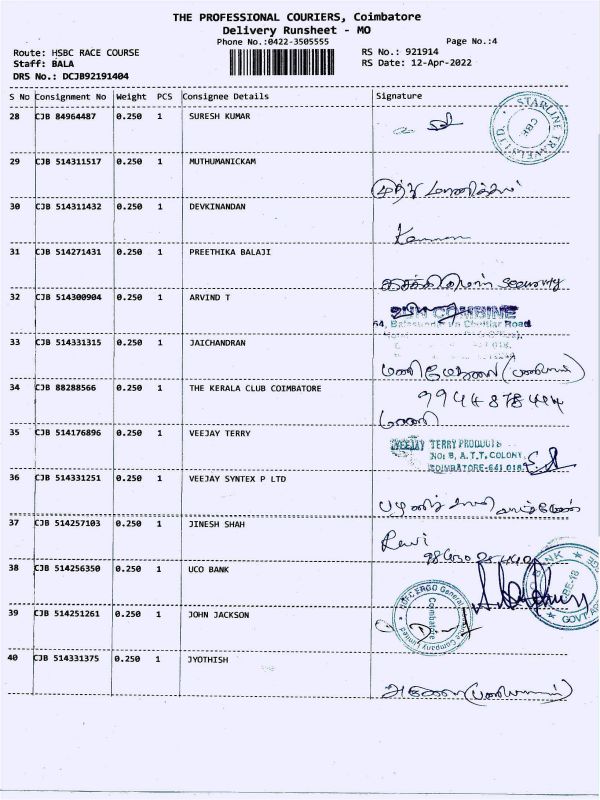 THE PROFESSIONAL COURIERS, Coimbatore
Delivery Runsheet - MO
Phone No.:0422-3505555
Page No.:4
Route: HSBC RACE COURSE
RS No.: 921914
Staff: BALA
RS Date: 12-Apr-2022
DRS No.: DCJB92191404
S No Consignment No Weight PCS Consignee Details Signature
28 CJB 84964487 0.250 1 SURESH KUMAR
STARLINE TRAVELS LTD.
CBE
29 CJB 514311517 0.250 1 MUTHUMANICKAM
30 CJB 514311432 0.250 1 DEVKINANDAN
31 CJB 514271431 0.250 1 PREETHIKA BALAJI
security
32 CJB 514300904 0.250 1 ARVIND T
COMBINE
Chettiar Road
33 CJB 514331315 0.250 1 JAICHANDRAN
34 CJB 88288566 0.250 1 THE KERALA CLUB COIMBATORE
35 CJB 514176896 0.250 1 VEEJAY TERRY
VEEJAY TERRY PRODUCTS
NO: 8, A.T.T. COLONY,
COIMBATORE-641 018.
36 CJB 514331251 0.250 1 VEEJAY SYNTEX P LTD
37 CJB 514257103 0.250 1 JINESH SHAH
Ravi
38 CJB 514256350 0.250 1 UCO BANK
BANK
39 CJB 514251261 0.250 1 JOHN JACKSON
HDFC ERGO General Insurance Company Limited
Coimbatore
40 CJB 514331375 0.250 1 JYOTHISH